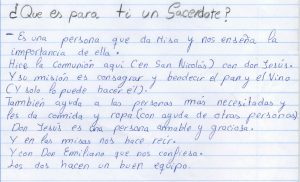 ¿Que es para ti un Sacerdote?
- Es una persona que da Misa y nos enseña la
importancia de ella.
Hice la comunión aquí (en San Nicolás) con don Jesús.
Y su misión es consagrar y bendecir el pan y el Vino
(Y solo lo puede hacer el).
También ayuda a las personas más necesitadas y
les da comida y ropa (con ayuda de otras personas)
Don Jesús es una persona amable y graciosa.
Y en las misas nos hace reir.
Y con Don Emiliano que nos confiesa.
Los dos hacen un buen equipo.